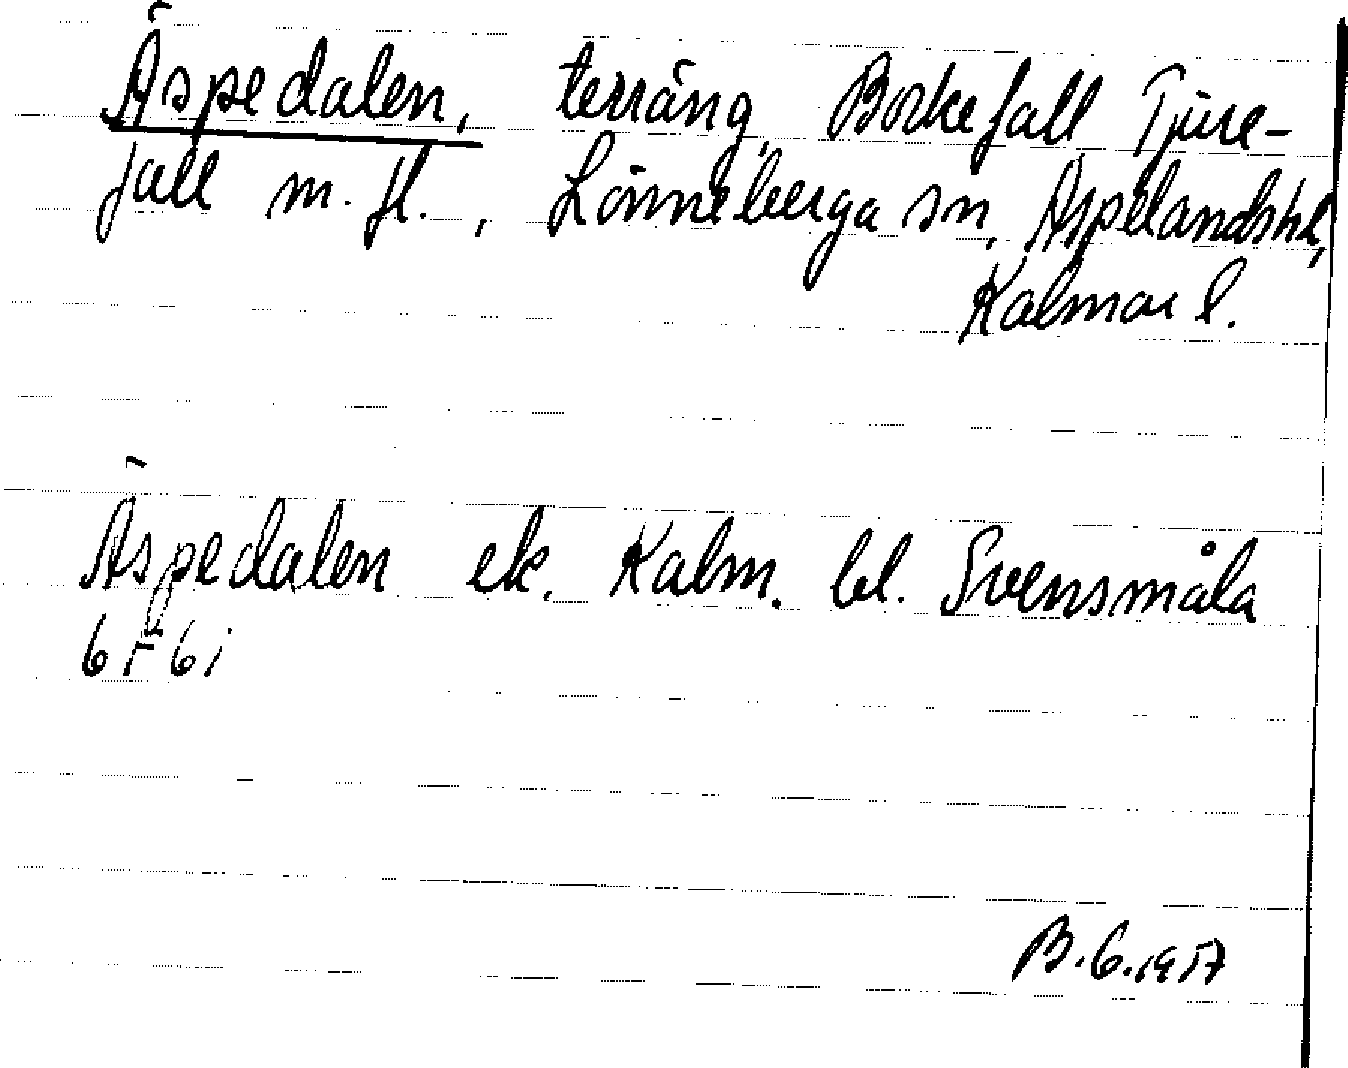 Äspedalen, terräng, Bockefall Tjure-
fall m. fl., Lönneberga sn, Aspelandshd,
Kalmar l.
Äspedalen ek. Kalm. bl. Svensmåla
6 F 6 i
B. 6. 1957